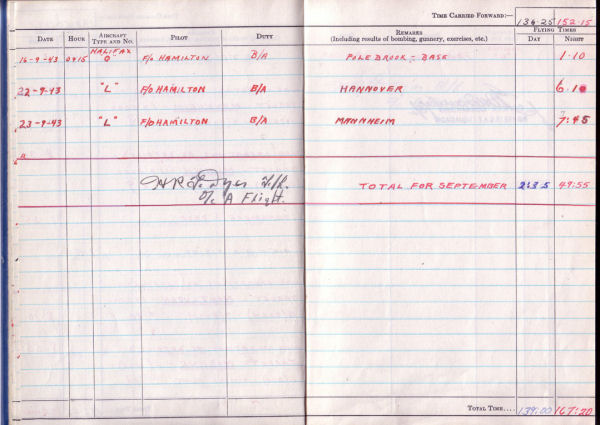 TIME CARRIED FORWARD:— 136·25 152·15
DATE HOUR AIRCRAFT TYPE AND NO. PILOT DUTY REMARKS (Including results of bombing, gunnery, exercises, etc.) FLYING TIMES DAY NIGHT
16-9-43 0415 HALIFAX "O" F/O HAMILTON B/A POLEBROOK - BASE 1·10
22-9-43 "L" F/O HAMILTON B/A HANNOVER 6·10
23-9-43 "L" F/O HAMILTON B/A MANNHEIM 7:45
TOTAL FOR SEPTEMBER 2:35 49:55
O/c A Flight.
TOTAL TIME.... 139:00 167:20